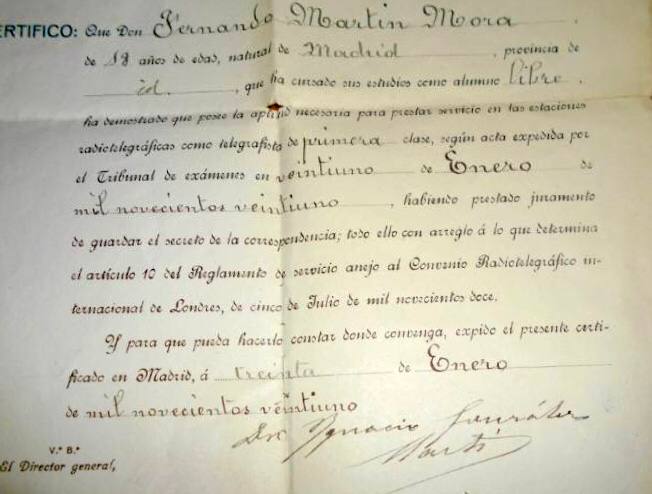 CERTIFICO: Que Don Fernando Martin Mora,
de 18 años de edad, natural de Madrid, provincia de
id., que ha cursado sus estudios como alumno libre,
ha demostrado que posee la aptitud necesaria para prestar servicio en las estaciones
radiotelegráficas como telegrafista de primera clase, según acta expedida por
el Tribunal de exámenes en veintiuno de Enero de
mil novecientos veintiuno, habiendo prestado juramento
de guardar el secreto de la correspondencia; todo ello con arreglo á lo que determina
el artículo 10 del Reglamento de servicio anejo al Convenio Radiotelegráfico in-
ternacional de Londres, de cinco de Julio de mil novecientos doce.
Y para que pueda hacerlo constar donde convenga, expido el presente certi-
ficado en Madrid, á treinta de Enero
de mil novecientos veintiuno
Ignacio González
Martí
V.º B.º
El Director general,